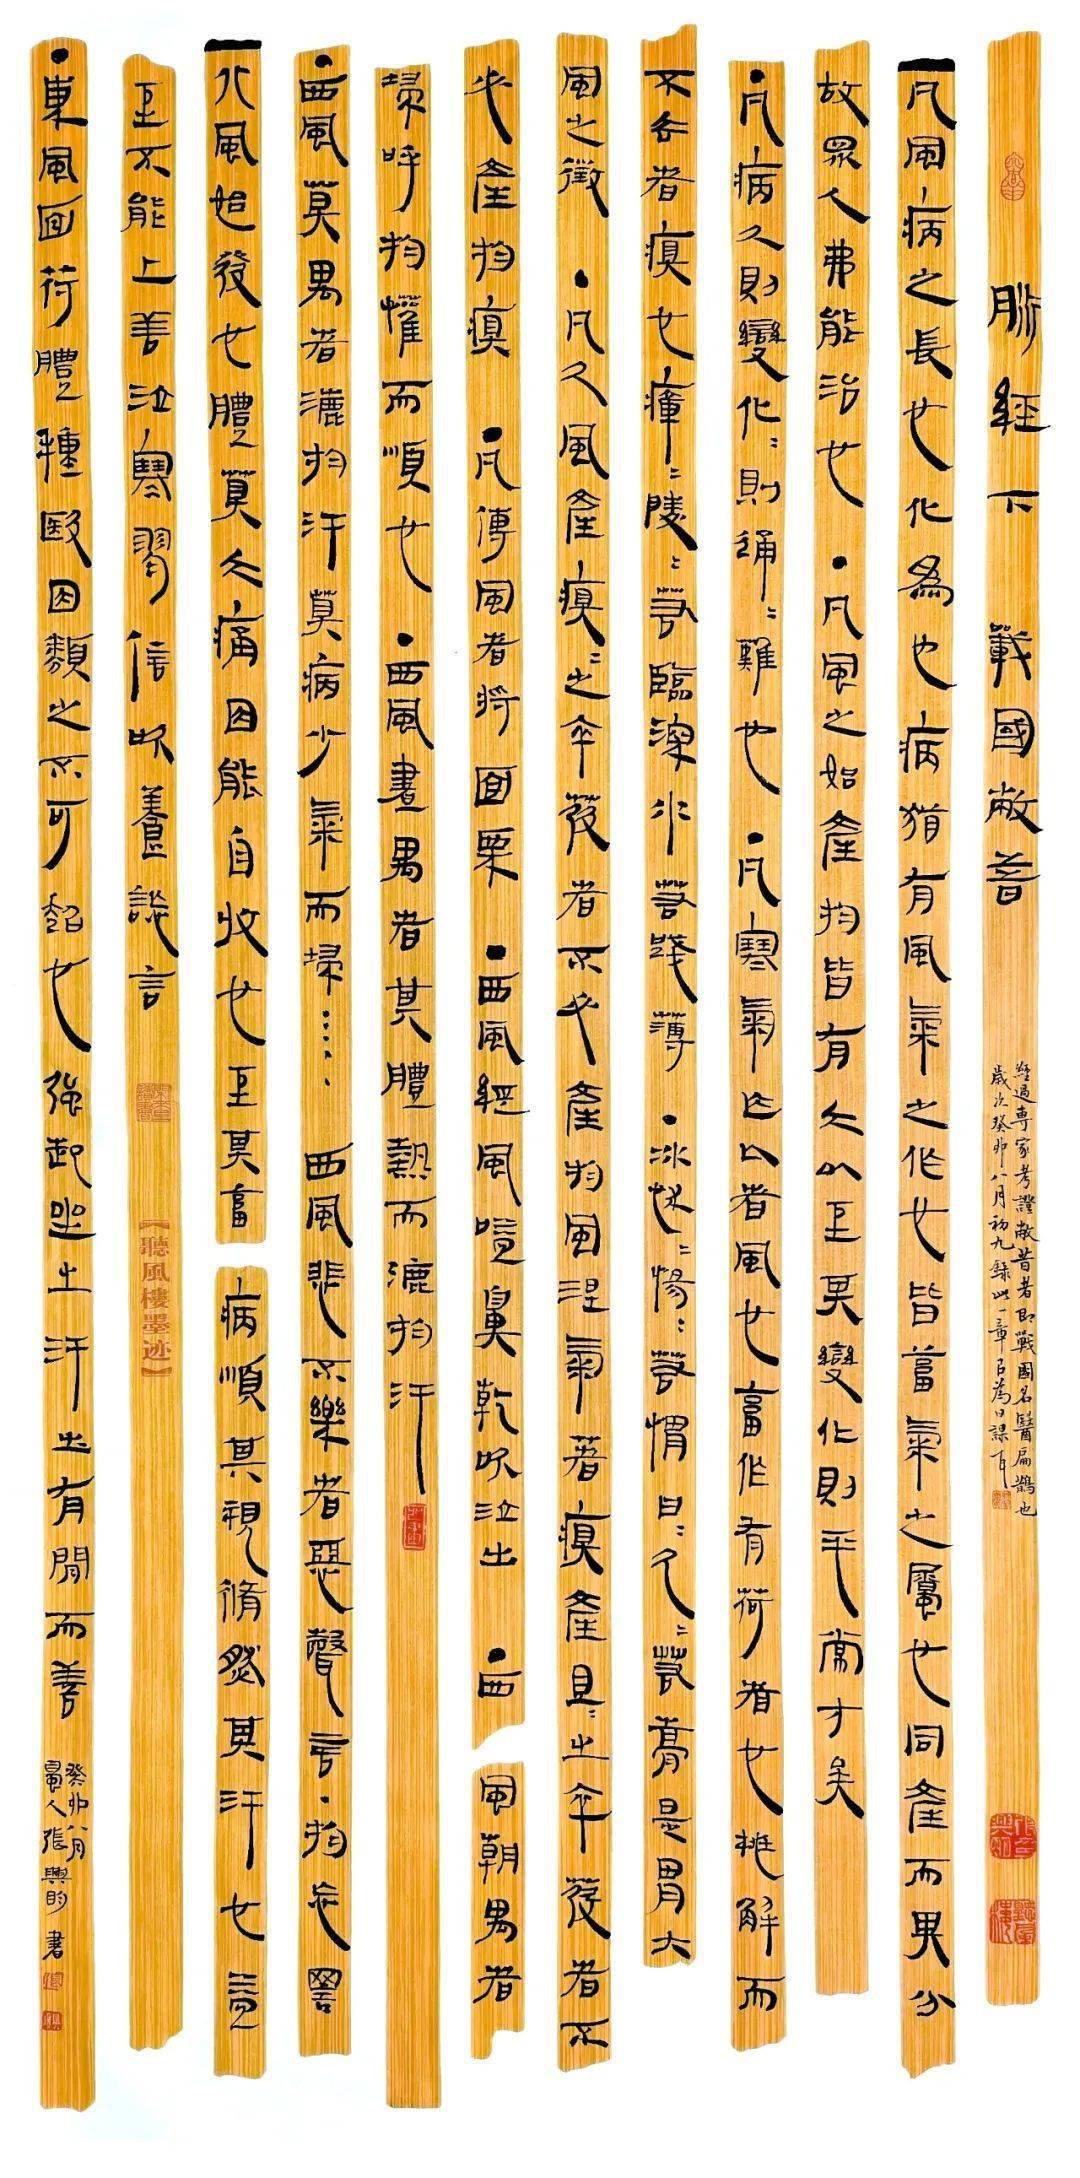 脈經下 戰國敝昔
經過專家考證敝昔者即戰國名醫扁鵲也
歲次癸卯八月初九錄此一章以為日課耳
凡風病之長也化為也病猶有風氣之作也皆當氣之屬也同產而異分
故眾人弗能治也・凡風之始產均皆有久以至其變化則平常才矣
・凡病久則變化＝則通＝難也・凡寒氣者風也有荷者也解而
不者瘨也痺＝陵＝若臨深水若踐薄・冰＝惕＝若謂日＝久＝若膏是胃大
風之徵・凡久風產瘨＝之卒發者不必產均風氣著瘨產且＝之卒發者不
必產均瘨・凡傳風者將面栗・西風經風噎鼻乾呿泣出・西風朝禺者
掃呼均懼而順也・西風晝禺者其體熱而漉均汗
・西風莫禺者漉均汗莫病少氣而掃…… 西風悲不樂者惡聲言・均忘詈
八風始發也體莫久痛因能自收也至其病順其視脩然其汗也
至不能上善泣寒 信呿養談言
【聽風樓墨迹】
・東風面荷體種因類之不可也強起坐之汗出有間而善
癸卯八月
張興昀書